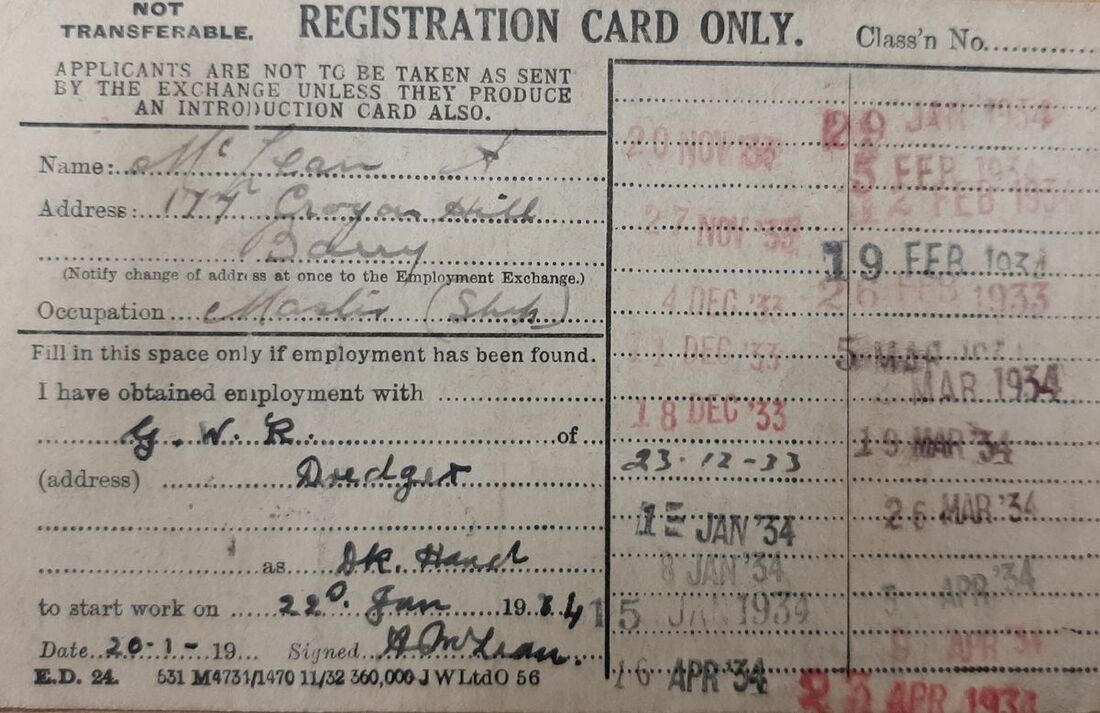 NOT
TRANSFERABLE.
REGISTRATION CARD ONLY.
Class'n No.
APPLICANTS ARE NOT TO BE TAKEN AS SENT
BY THE EXCHANGE UNLESS THEY PRODUCE
AN INTRODUCTION CARD ALSO.
Name: McLean A
Address: Hill
Barry
(Notify change of address at once to the Employment Exchange.)
Occupation (Ship)
Fill in this space only if employment has been found.
I have obtained employment with
G. W. R. of
(address) Dredger
as Dk. Hand
to start work on 22 Jan 1934
Date 20-1- 19 Signed A McLean.
E.D. 24. 531 M4731/1470 11/32 360,000 J W Ltd O 56
20 NOV '33
27 NOV '33
4 DEC '33
11 DEC '33
18 DEC '33
23-12-33
JAN '34
8 JAN '34
15 JAN 1934
16 APR '34
29 JAN 1934
5 FEB 1934
12 FEB 1934
19 FEB 1934
26 FEB 1933
5 MAR
MAR 1934
19 MAR '34
26 MAR '34
APR '34
APR '34
23 APR 1934